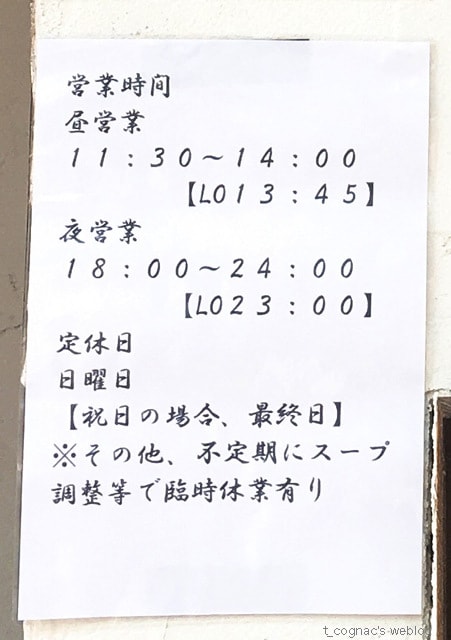 営業時間
昼営業
１１：３０～１４：００
【LO１３：４５】
夜営業
１８：００～２４：００
【LO２３：００】
定休日
日曜日
【祝日の場合、最終日】
※その他、不定期にスープ
調整等で臨時休業有り
t_cognac's-weblog